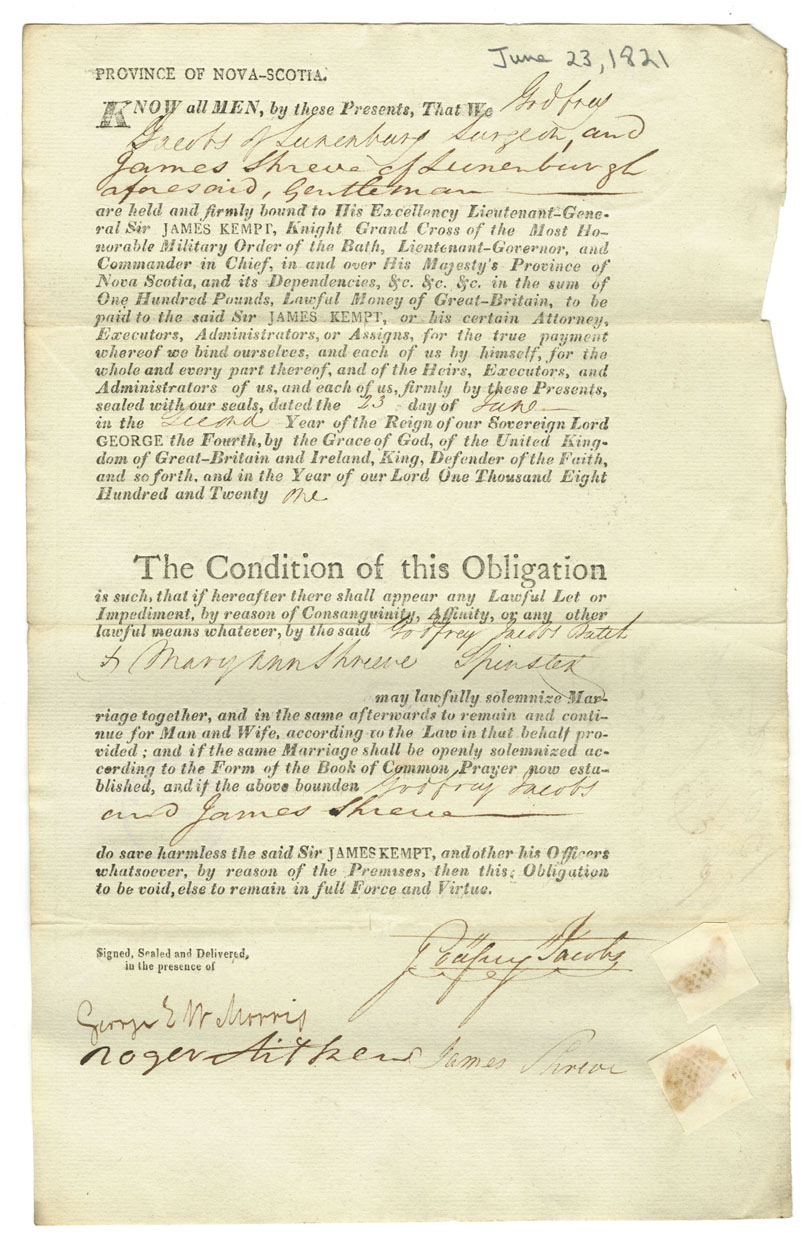 June 23, 1821
PROVINCE OF NOVA-SCOTIA.
KNOW all MEN, by these Presents, That We Godfrey
Jacobs of Lunenburg Surgeon, and
James Shreve of Lunenburgh
aforesaid, Gentleman
are held and firmly bound to His Excellency Lieutenant-Gene-
ral Sir JAMES KEMPT, Knight Grand Cross of the Most Ho-
norable Military Order of the Bath, Lieutenant-Governor, and
Commander in Chief, in and over His Majesty's Province of
Nova Scotia, and its Dependencies, &c. &c. &c. in the sum of
One Hundred Pounds, Lawful Money of Great-Britain, to be
paid to the said Sir JAMES KEMPT, or his certain Attorney,
Executors, Administrators, or Assigns, for the true payment
whereof we bind ourselves, and each of us by himself, for the
whole and every part thereof, and of the Heirs, Executors, and
Administrators of us, and each of us, firmly by these Presents,
sealed with our seals, dated the 23 day of June
in the Second Year of the Reign of our Sovereign Lord
GEORGE the Fourth, by the Grace of God, of the United King-
dom of Great-Britain and Ireland, King, Defender of the Faith,
and so forth, and in the Year of our Lord One Thousand Eight
Hundred and Twenty one
The Condition of this Obligation
is such, that if hereafter there shall appear any Lawful Let or
Impediment, by reason of Consanguinity, Affinity, or any other
lawful means whatever, by the said Godfrey Jacobs Batch
& Mary Ann Shreeve Spinster
may lawfully solemnize Mar-
riage together, and in the same afterwards to remain and conti-
nue for Man and Wife, according to the Law in that behalf pro-
vided; and if the same Marriage shall be openly solemnized ac-
cording to the Form of the Book of Common Prayer now esta-
blished, and if the above bounden Godfrey Jacobs
and James Shreve
do save harmless the said Sir JAMES KEMPT, and other his Officers
whatsoever, by reason of the Premises, then this Obligation
to be void, else to remain in full Force and Virtue.
Signed, Sealed and Delivered,
in the presence of
Godfrey Jacobs
George E W Morris
Roger Aitken James Shreve